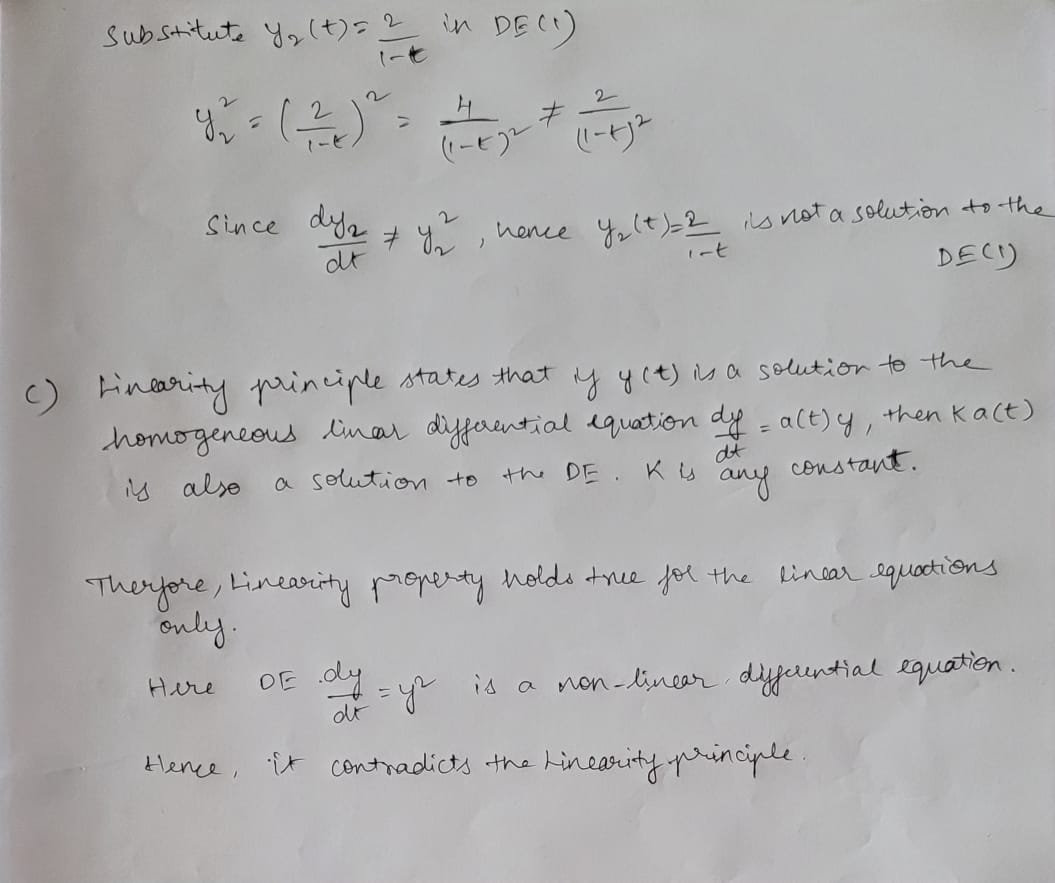 Substitute y₂(t) = 2/(1-t) in DE(1)
y₂² = (2/(1-t))² = 4/(1-t)² ≠ 2/(1-t)²
Since dy₂/dt ≠ y₂², hence y₂(t) = 2/(1-t) is not a solution to the
DE(1)
c) Linearity principle states that if y(t) is a solution to the
homogeneous linear differential equation dy/dt = a(t)y, then K a(t)
is also a solution to the DE. K is any constant.
Therfore, Linearity property holds true for the linear equations
only.
Here DE dy/dt = y² is a non-linear differential equation.
Hence, it contradicts the Linearity principle.